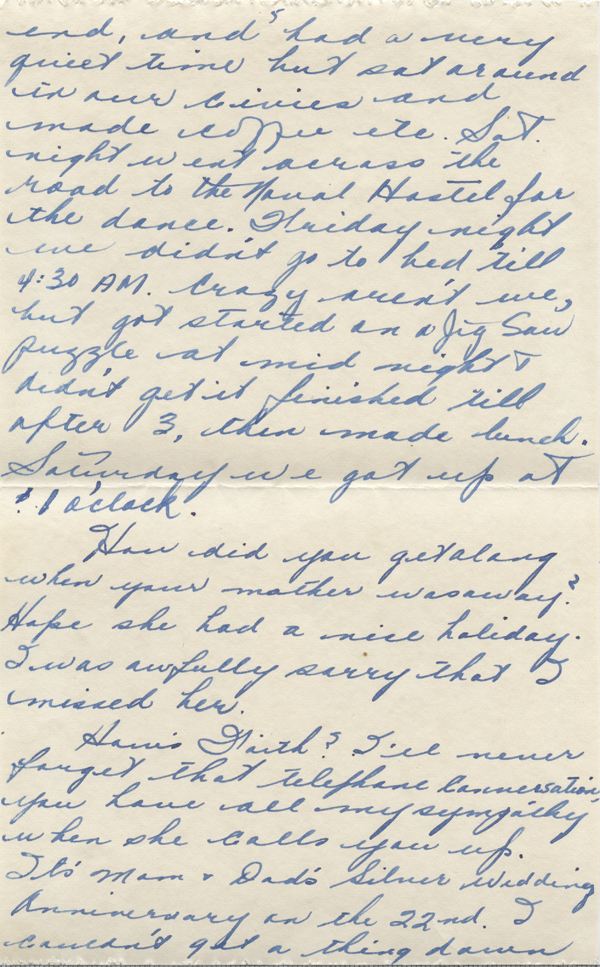 end, and had a very
quiet time but sat around
in our civies and
made coffee etc. Sat.
night went across the
road to the Naval Hostel for
the dance. Friday night
we didn't go to bed till
4:30 AM. Crazy aren't we,
but got started on a Jig Saw
puzzle at mid night &
didn't get it finished till
after 3, then made lunch.
Saturday we got up at
1 o'clock.
How did you get along
when your mother was away?
Hope she had a nice holiday.
I was awfully sorry that I
missed her.
How's Faith? I'll never
forget that telephone conversation,
you have all my sympathy
when she calls you up.
It's Mom & Dad's Silver Wedding
Anniversary on the 22nd. I
couldn't get a thing down